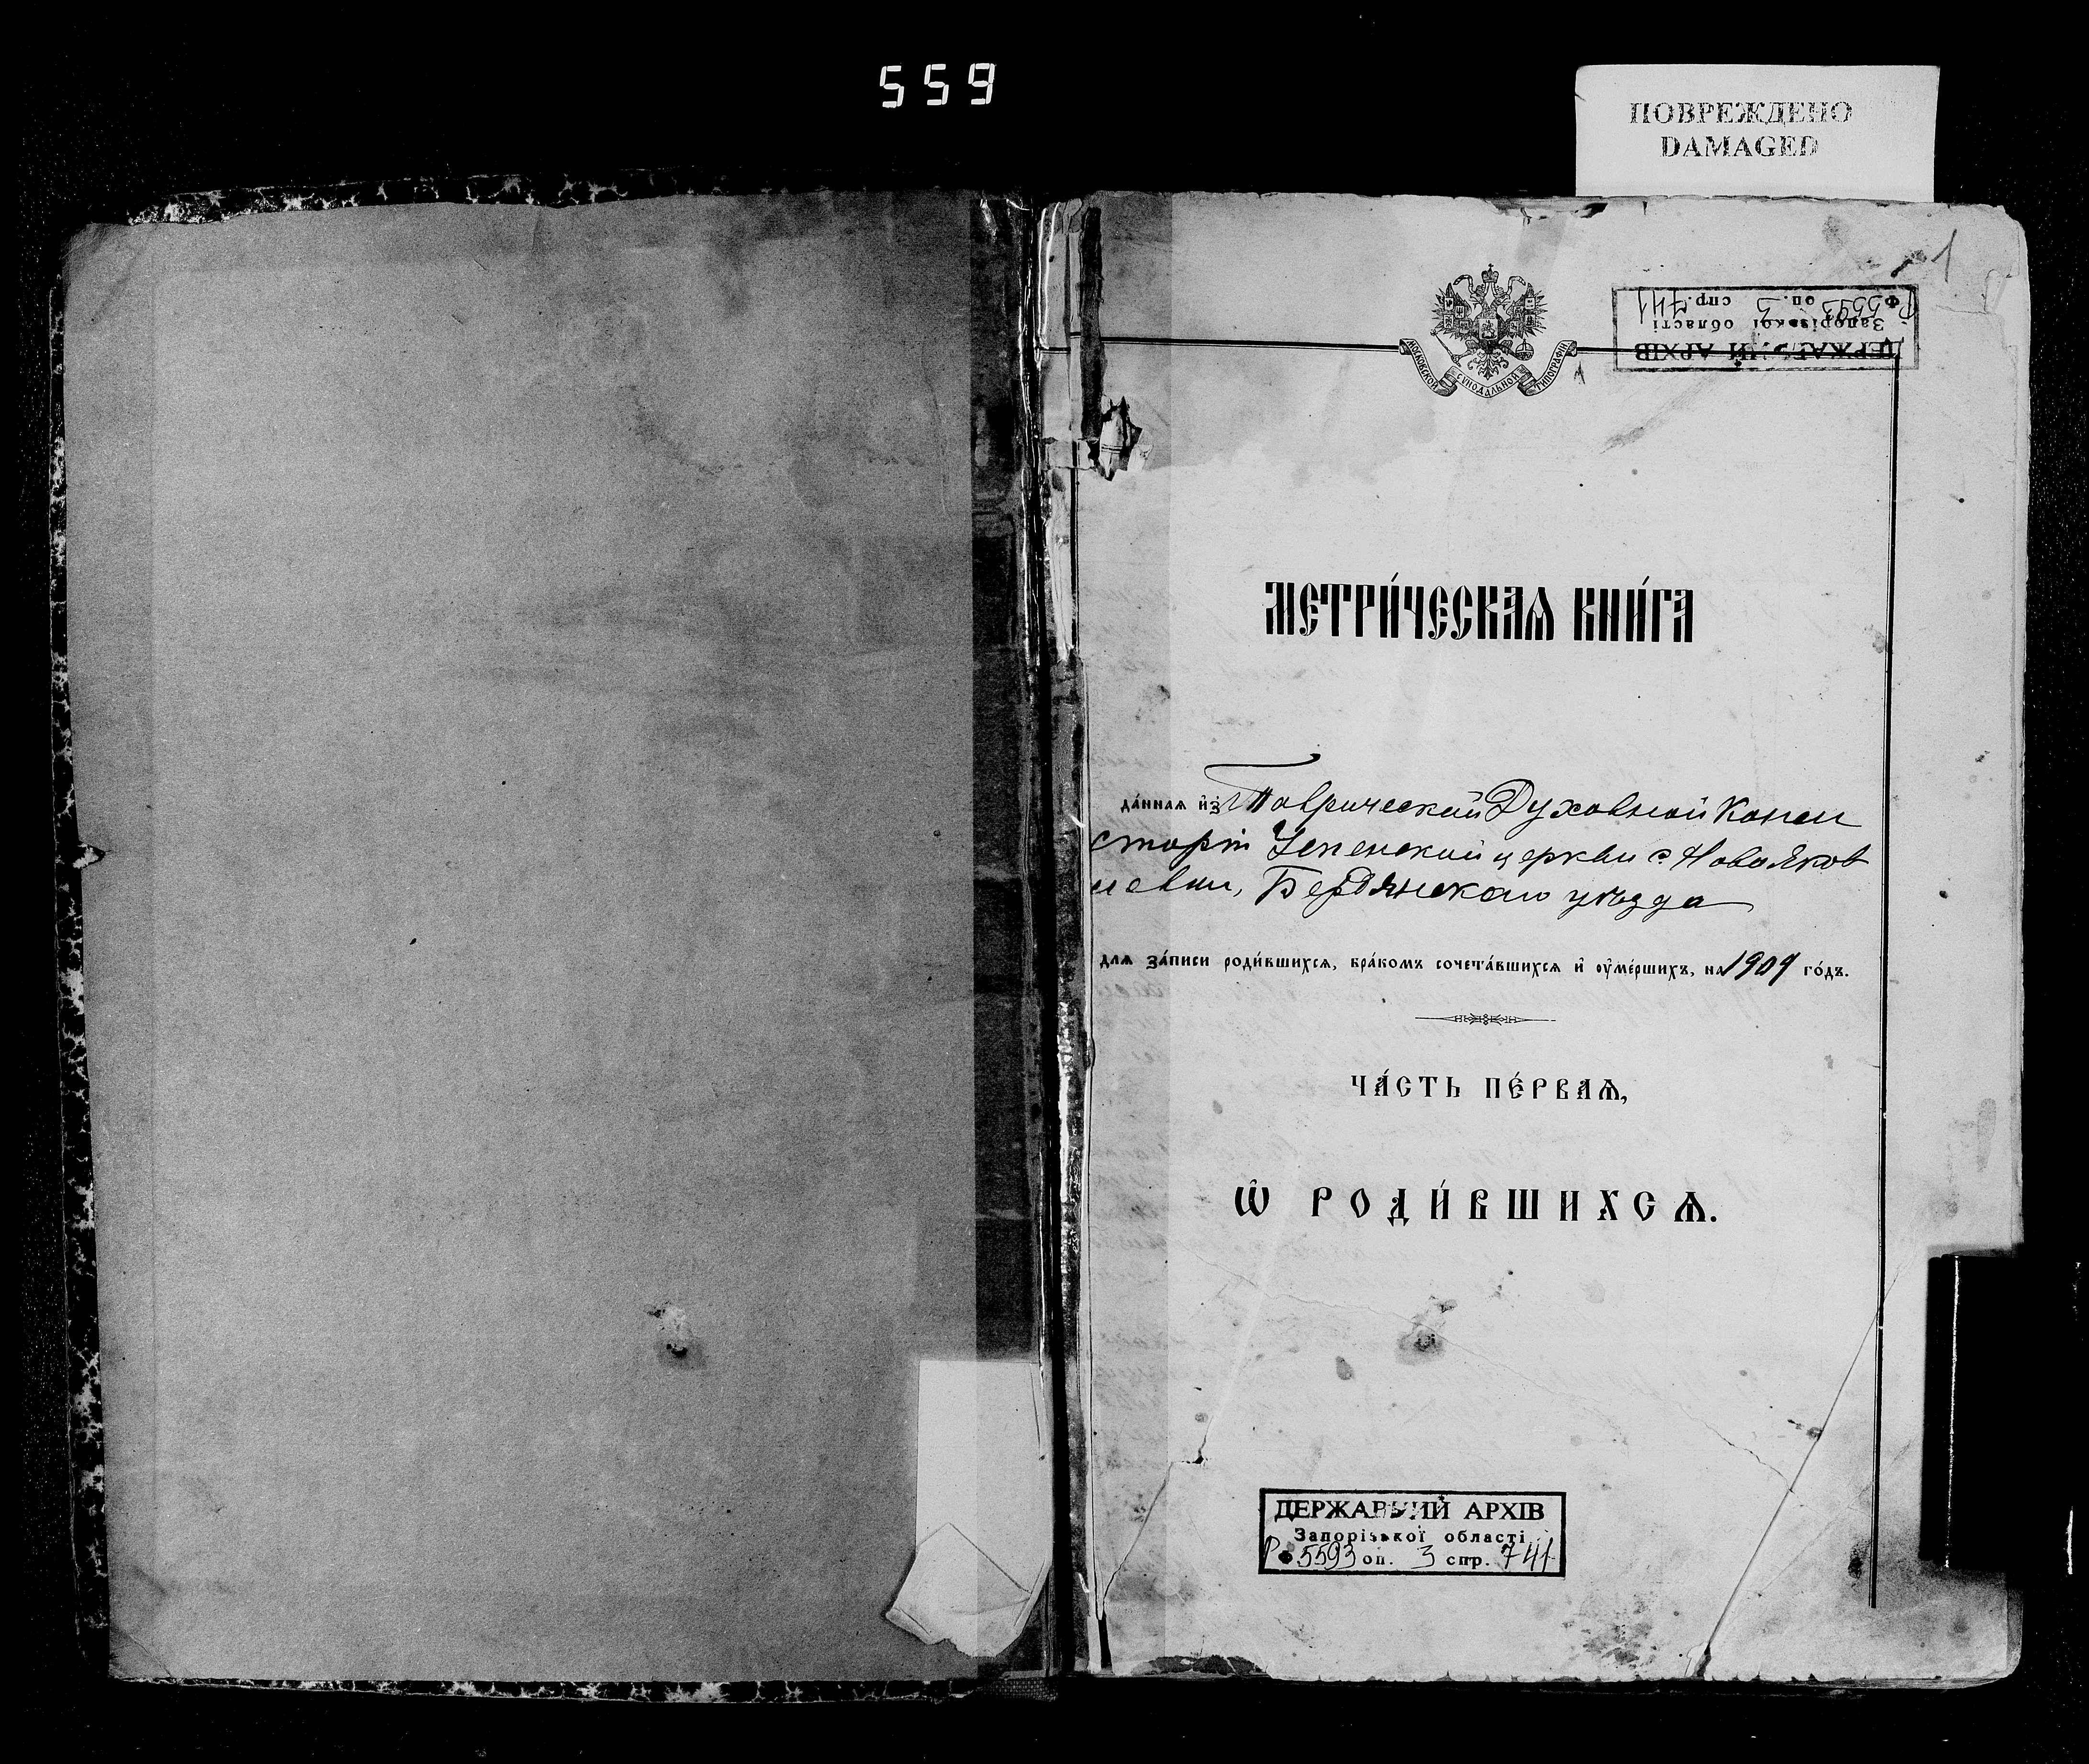 559
ПОВРЕЖДЕНО
DAMAGED
1
ДЕРЖАВНИЙ АРХІВ
Запорізької області
Р Ф 5593 оп. 3 спр. 741
МОСКОВСКОЙ СУНОДАЛЬНОЙ ТИПОГРАФІИ
МЕТРИ́ЧЕСКАѦ КНИ́ГА
да́ннаѧ и҆з̾ Таврической Духовной Конси
сторіи Успенской церкви с. Новояков
левки, Бердянскаго уѣзда
для за́писи роди́вшихсѧ, бра́комъ сочета́вшихсѧ и҆ ᲂу҆ме́ршихъ, на 1909 го́дъ.
ЧА́СТЬ ПЕ́РВАѦ,
Ѽ РОДИ́ВШИХСѦ.
ДЕРЖАВНИЙ АРХІВ
Запорізької області
Р Ф 5593 оп. 3 спр. 741